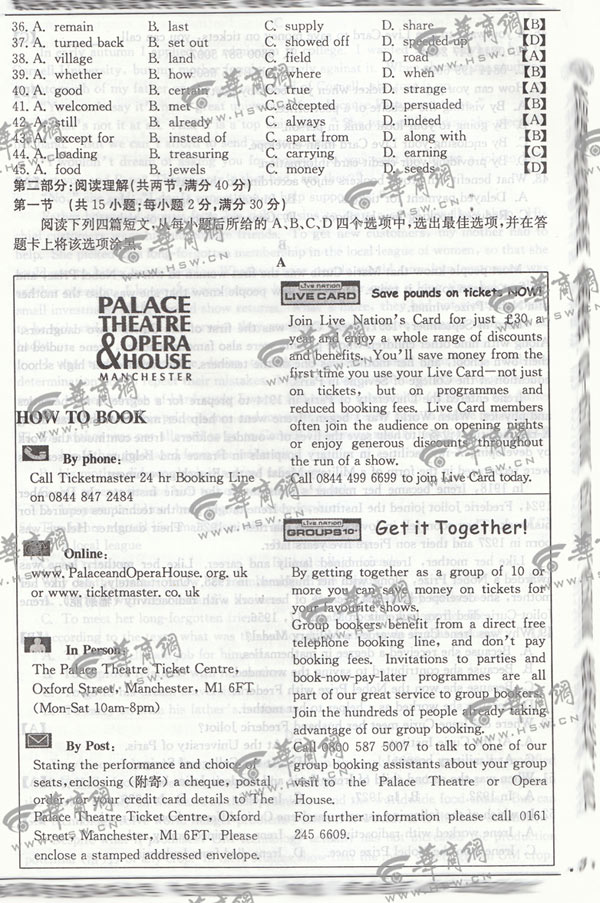 36. A. remain B. last C. supply D. share 【B】
37. A. turned back B. set out C. showed off D. speeded up 【D】
38. A. village B. land C. field D. road 【A】
39. A. whether B. how C. where D. when 【B】
40. A. good B. certain C. true D. strange 【A】
41. A. welcomed B. met C. accepted D. persuaded 【B】
42. A. still B. already C. always D. indeed 【A】
43. A. except for B. instead of C. apart from D. along with 【B】
44. A. loading B. treasuring C. carrying D. earning 【C】
45. A. food B. jewels C. money D. seeds 【D】
第二部分:阅读理解(共两节,满分 40 分)
第一节 (共 15 小题;每小题 2 分,满分 30 分)
阅读下列四篇短文,从每小题后所给的 A、B、C、D 四个选项中,选出最佳选项,并在答
题卡上将该选项涂黑。
A
PALACE
THEATRE
& OPERA
HOUSE
MANCHESTER
HOW TO BOOK
By phone:
Call Ticketmaster 24 hr Booking Line
on 0844 847 2484
Online:
www. PalaceandOperaHouse. org. uk
or www. ticketmaster. co. uk
In Person:
The Palace Theatre Ticket Centre,
Oxford Street, Manchester, M1 6FT
(Mon-Sat 10am-8pm)
By Post:
Stating the performance and choice of
seats, enclosing (附寄) a cheque, postal
order, or your credit card details to The
Palace Theatre Ticket Centre, Oxford
Street, Manchester, M1 6FT. Please
enclose a stamped addressed envelope.
LIVE NATION
LIVE CARD Save pounds on tickets NOW!
Join Live Nation's Card for just £30 a
year and enjoy a whole range of discounts
and benefits. You'll save money from the
first time you use your Live Card—not just
on tickets, but on programmes and
reduced booking fees. Live Card members
often join the audience on opening nights
or enjoy generous discounts throughout
the run of a show.
Call 0844 499 6699 to join Live Card today.
LIVE NATION
GROUPS10+ Get it Together!
By getting together as a group of 10 or
more you can save money on tickets for
your favourite shows.
Group bookers benefit from a direct free
telephone booking line, and don't pay
booking fees. Invitations to parties and
book-now-pay-later programmes are all
part of our great service to group bookers.
Join the hundreds of people already taking
advantage of our group booking.
Call 0800 587 5007 to talk to one of our
group booking assistants about your group
visit to the Palace Theatre or Opera
House.
For further information please call 0161
245 6609.
華商網
WWW.HSW.CN